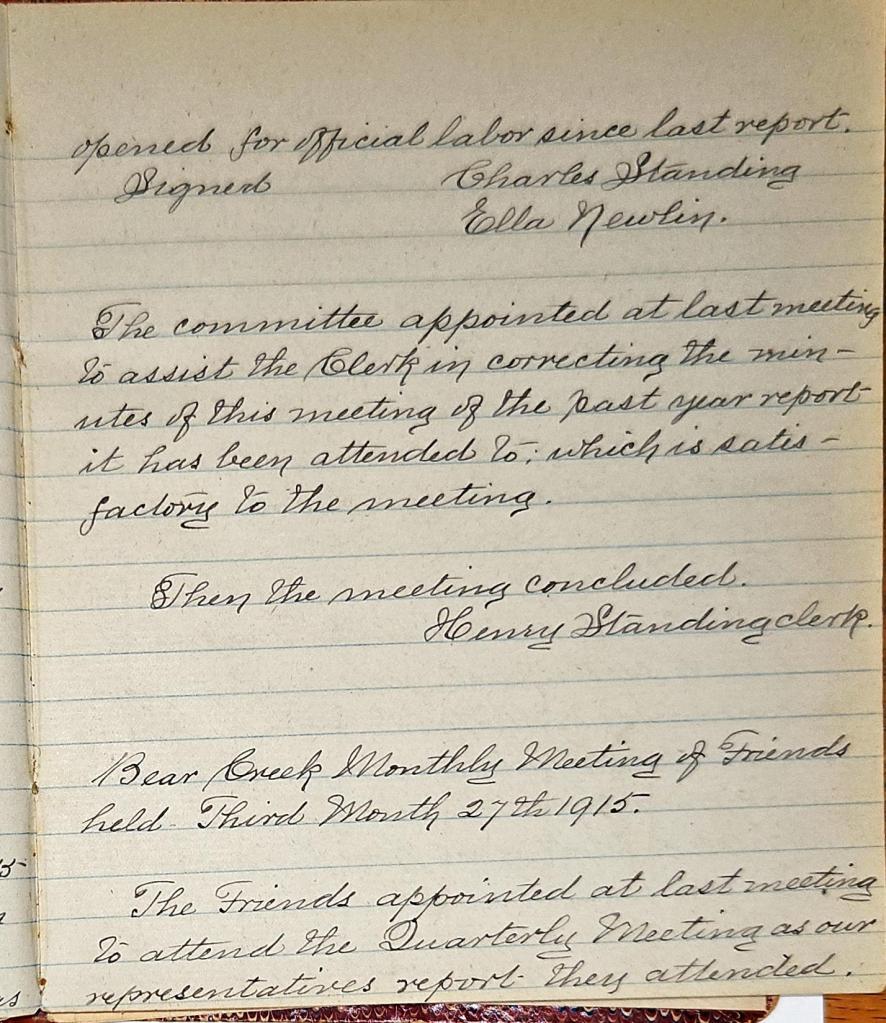 opened for official labor since last report.
Signed Charles Standing
Ella Newlin.
The committee appointed at last meeting
to assist the Clerk in correcting the min-
utes of this meeting of the past year report
it has been attended to; which is satis-
factory to the meeting.
Then the meeting concluded.
Henry Standing clerk.
Bear Creek Monthly Meeting of Friends
held Third Month 27th 1915.
The Friends appointed at last meeting
to attend the Quarterly Meeting as our
representatives report they attended.